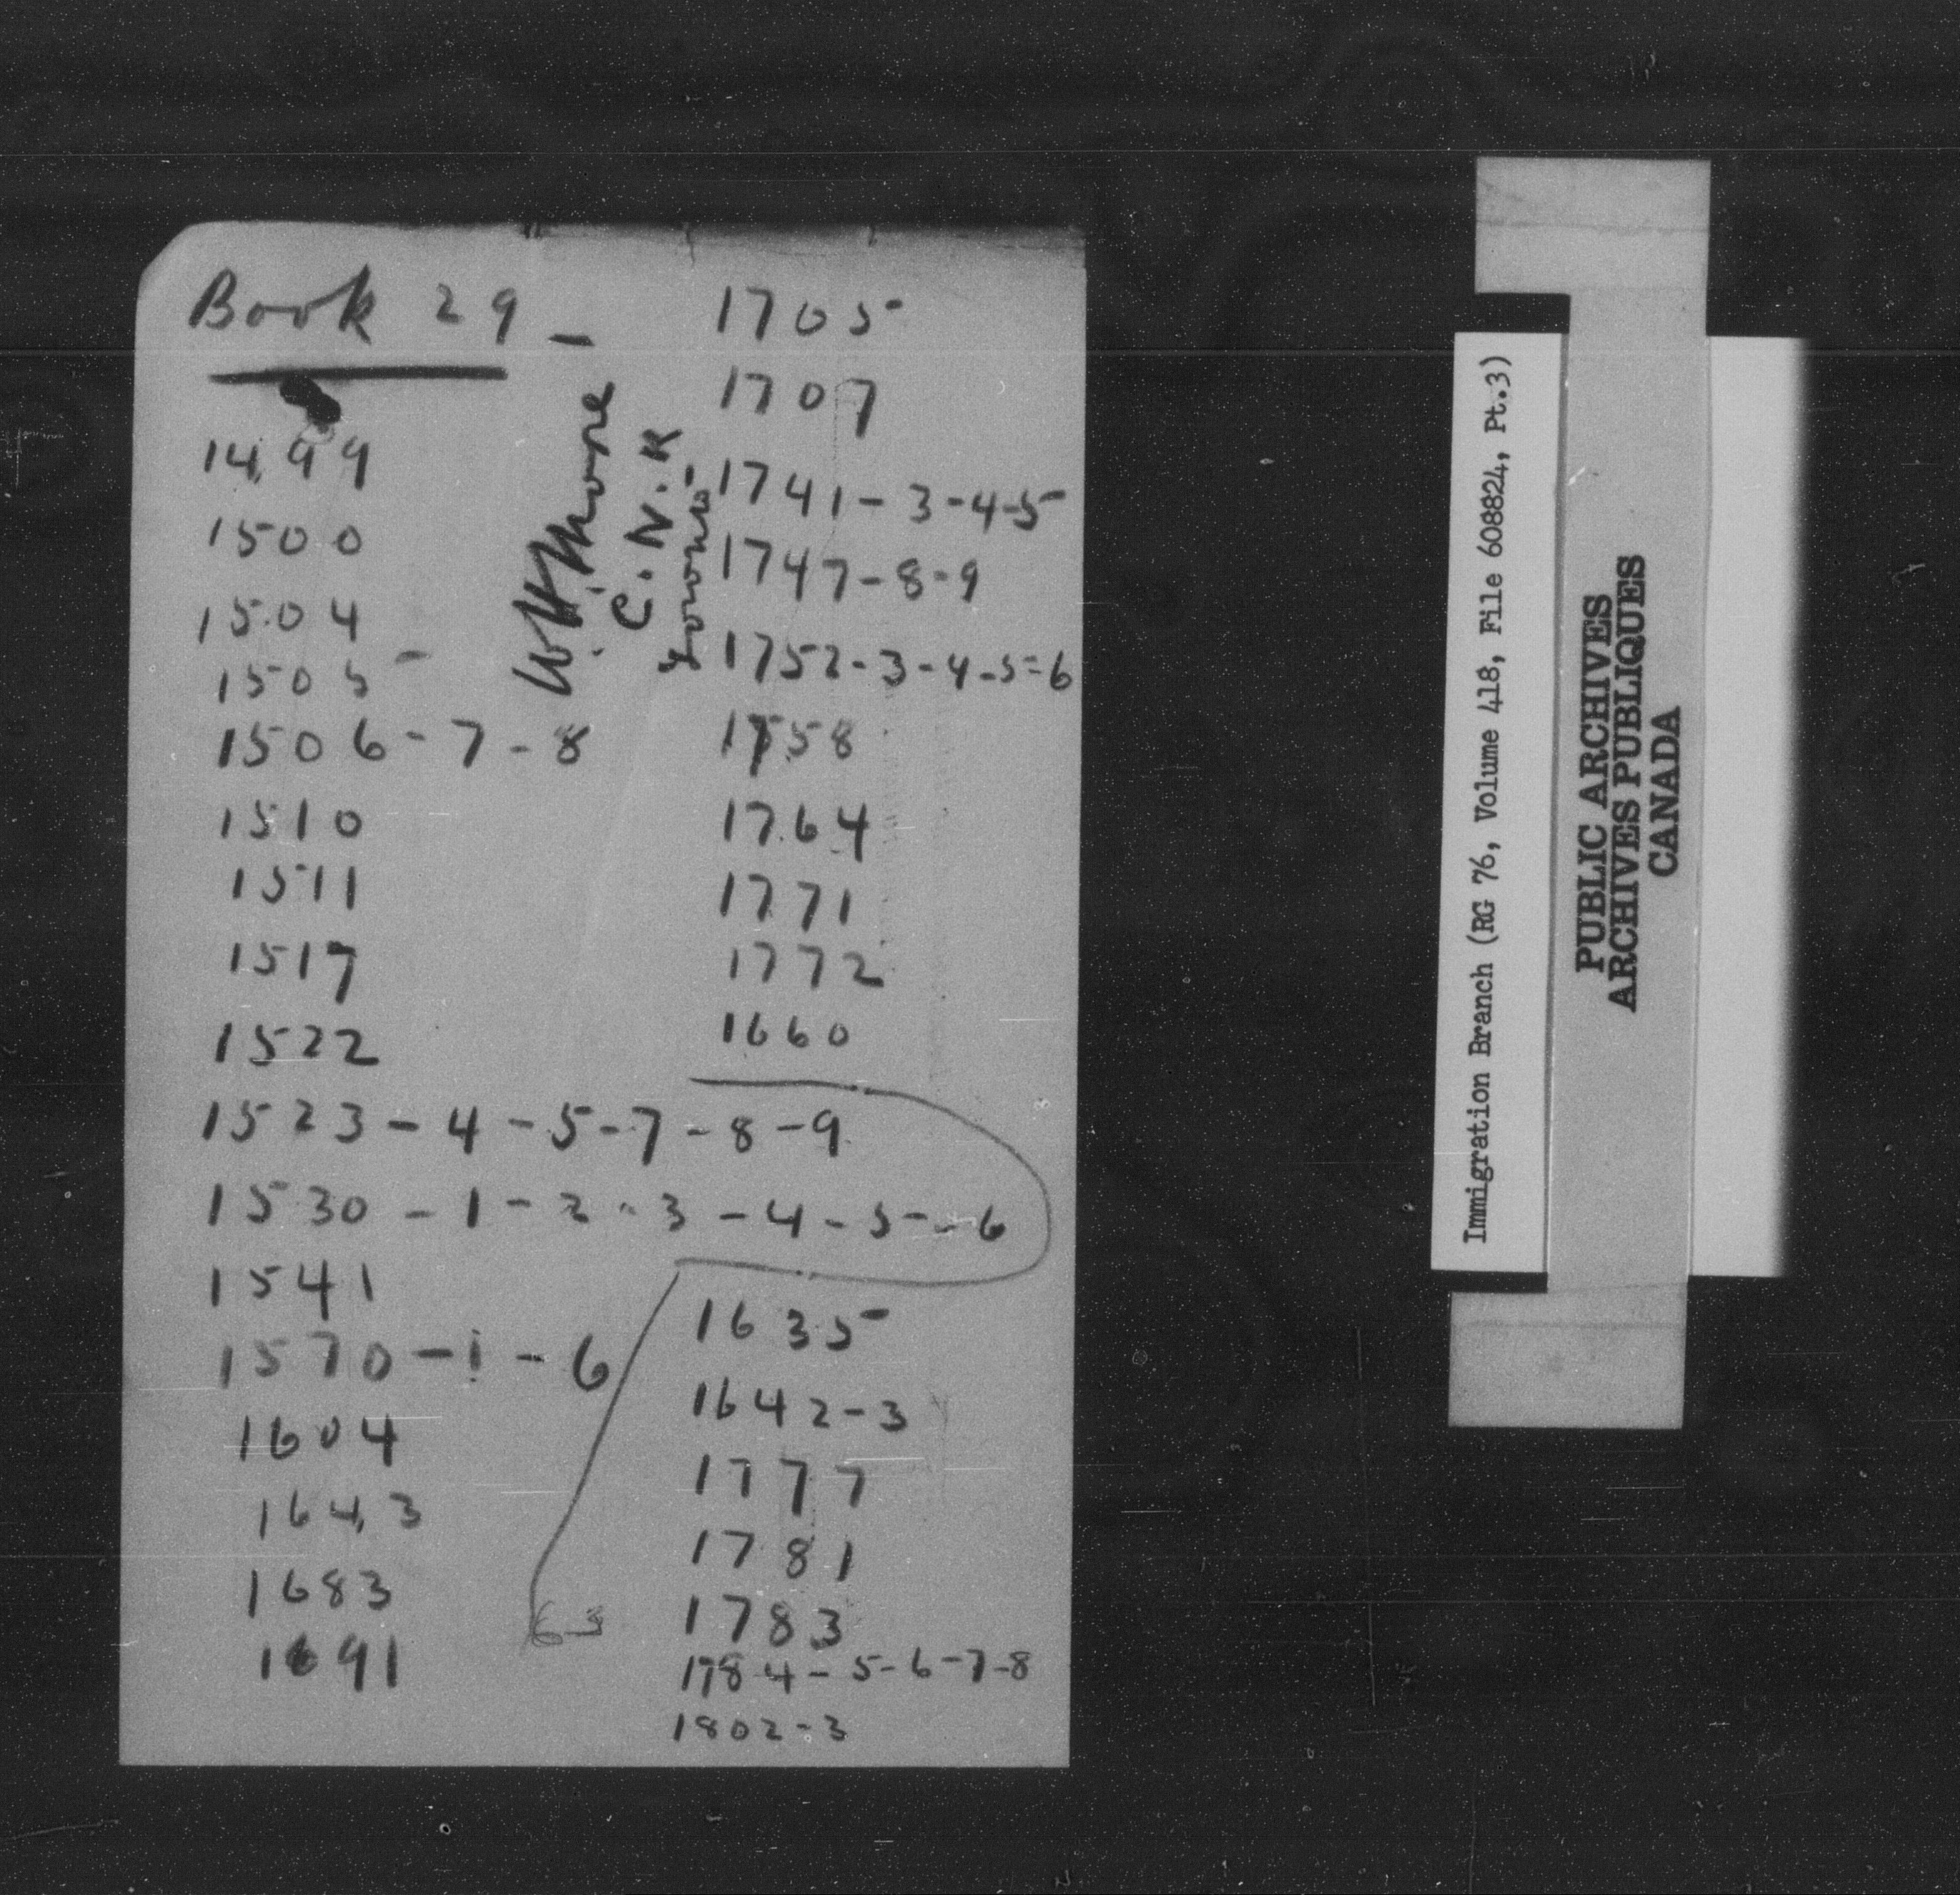 Book 29 -
1499
1500
1504
1505
1506-7-8
1510
1511
1517
1522
1523-4-5-7-8-9
1530-1-2-3-4-5-6
1541
1570-1-6
1604
1643
1683
1691
W.H. Moore
C.N.R
Toronto
1705
1707
1741-3-4-5
1747-8-9
1752-3-4-5-6
1758
1764
1771
1772
1660
1635
1642-3
1777
1781
1783
1784-5-6-7-8
1802-3
Immigration Branch (RG 76, Volume 418, File 608824, Pt.3)
PUBLIC ARCHIVES
ARCHIVES PUBLIQUES
CANADA